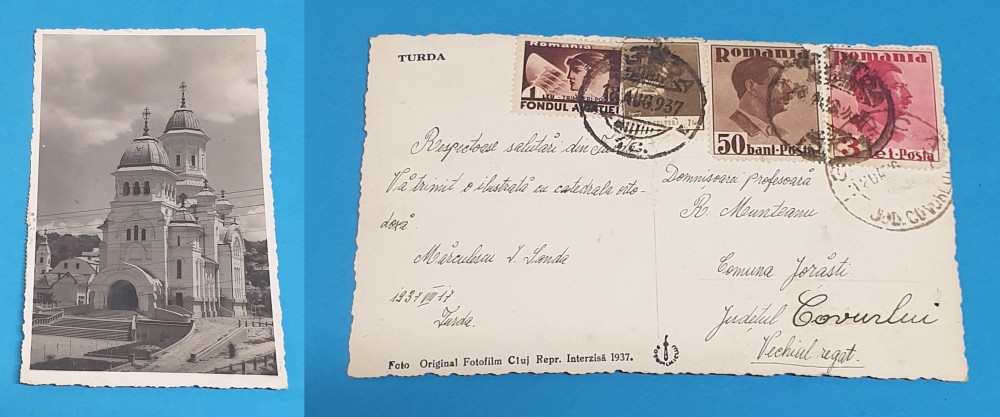 TURDA
Romania
1 LEU
FONDUL AVIAȚIEI
Romania
50 bani-Posta
Romania
3 Lei-Posta
AUG 937
JUD. COVURLUI
Respectoase salutări din
Vă trimit o ilustrată cu catedrala orto-
doxă.
Mărculescu I. Sanda
1937 VIII 17
Turda.
Domnișoarei profesoară
R. Munteanu
Comuna Jorăsti
Județul Covurlui
Vechiul regat.
Foto Original Fotofilm Cluj Repr. Interzisă 1937.